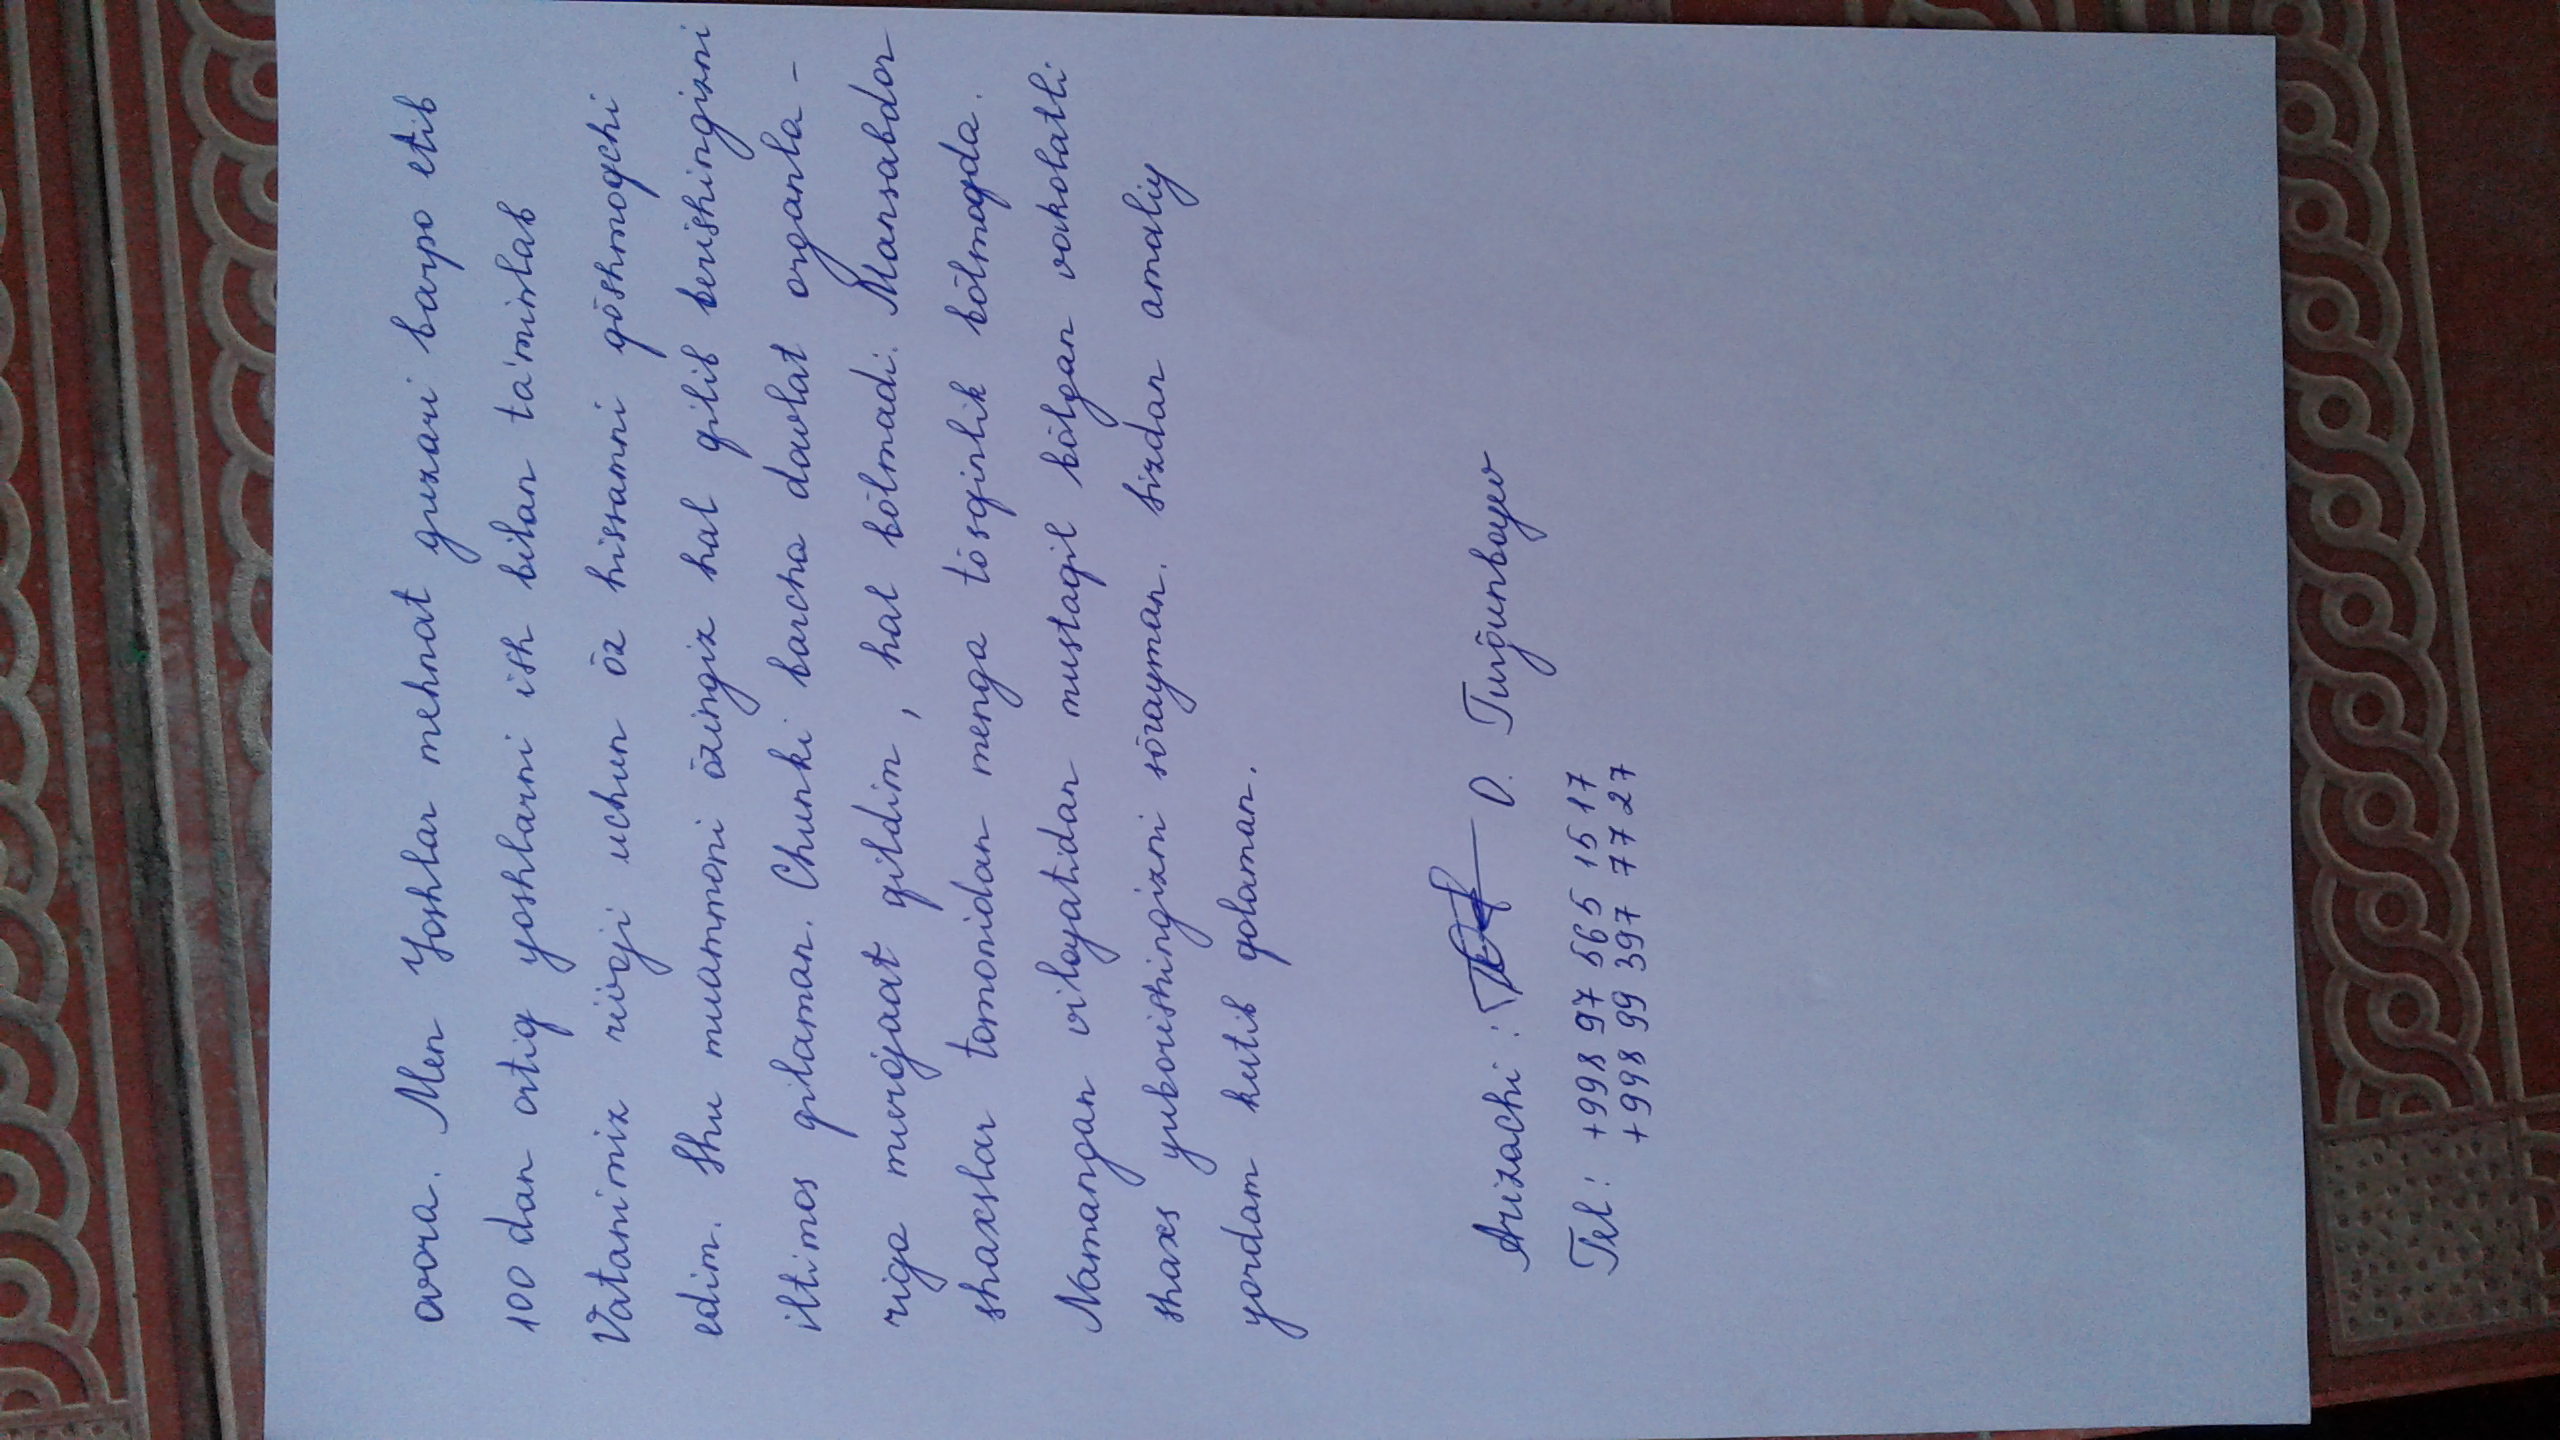 ovora. Men Yoshlar mehnat guzari barpo etib
100 dan ortiq yoshlarni ish bilan ta'minlab
Vatanimiz rivoji uchun õz hissamni qõshmoqchi
edim. Shu muammoni õzingiz hal qilib berishingizni
iltimos qilaman. Chunki barcha davlat organla-
riga murojaat qildim, hal bõlmadi. Mansabdor
shaxslar tomonidan menga tõsqinlik bõlmoqda.
Namangan viloyatidan mustaqil bõlgan vakolatli
shaxs yuborishingizni sõrayman. Sizdan amaliy
yordam kutib qolaman.
Arizachi: O. Turg̃unboyev
Tel: +998 97 565 15 17
+998 99 397 77 27